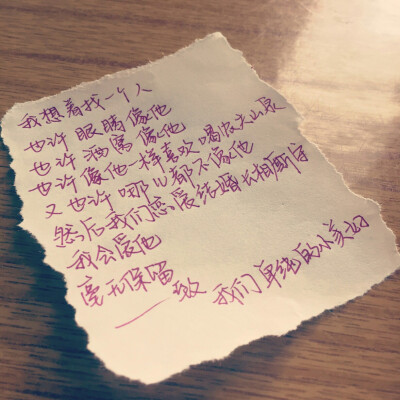 我想着找一个人
也许眼睛像他
也许酒窝像他
也许像他一样喜欢喝农夫山泉
又也许哪儿都不像他
然后我们恋爱结婚长相厮守
我会爱他
毫无保留
——致 我们单纯的小美好